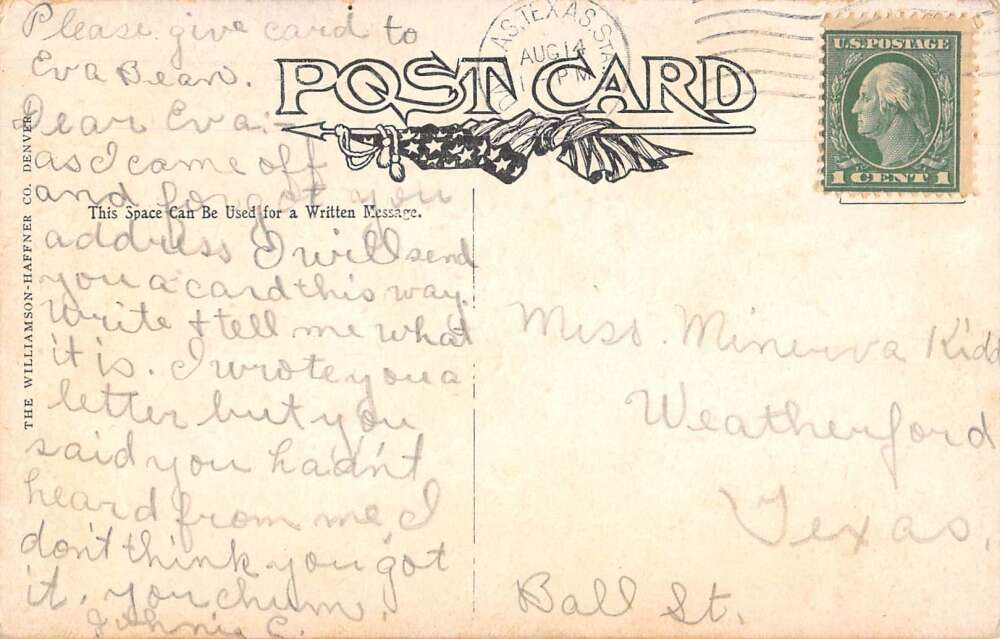 Please give card to
Eva Bean.
Dear Eva:-
as I came off
and forgot you
address I will send
you a card this way.
Write & tell me what
it is. I wrote you a
letter but you
said you hadn't
heard from me, I
don't think you got
it. you chum,
Johnie C.
POST CARD
This Space Can Be Used for a Written Message.
THE WILLIAMSON-HAFFNER CO. DENVER.
AS, TEXAS. STA
AUG 14
PM
U.S. POSTAGE
1 CENT 1
Miss. Minerva Kidd
Weatherford
Texas,
Ball St.